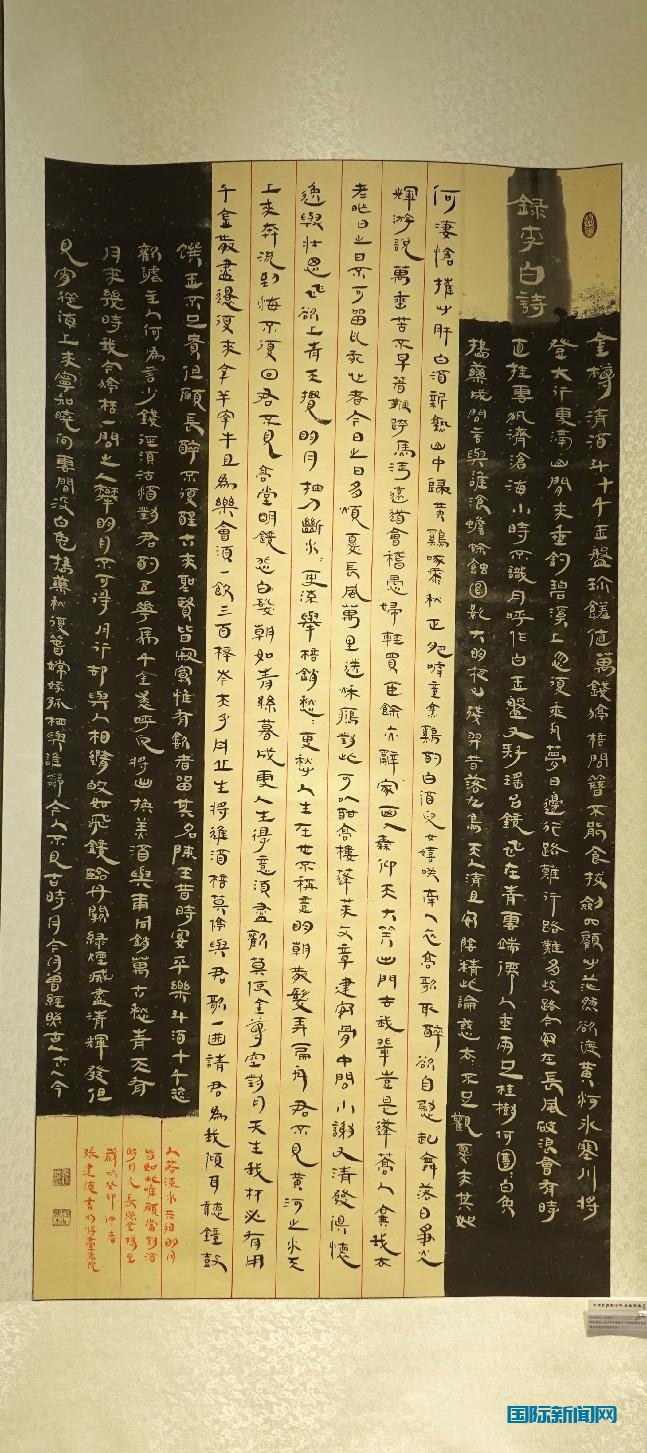 錄李白詩
金樽清酒斗十千玉盤珎饈值萬錢停杯投箸不能食拔劍四顧心茫然欲渡黃河冰塞川將
登太行雪滿山閒來垂釣碧溪上忽復乘舟夢日邊行路難行路難多歧路今安在長風破浪會有時
直挂雲帆濟滄海小時不識月呼作白玉盤又疑瑤台鏡飛在青雲端僊人垂兩足桂樹何團白兔
搗藥成問言與誰飡蟾蜍蝕圓影大明夜已殘羿昔落九烏天人清且安陰精此淪惑去不足觀憂來其如
何淒愴摧心肝白酒新熟山中歸黃雞啄黍秋正肥呼童烹雞酌白酒兒女嬉咲牽人衣高歌取醉欲自慰起舞落日爭光
輝游說萬乘苦不早著鞭跨馬涉遠道會稽愚婦輕買臣餘亦辭家西入秦仰天大笑出門去我輩豈是蓬蒿人棄我去
者昨日之日不可留乱我心者今日之日多煩憂長風萬里送秋鴈對此可以酣高樓蓬萊文章建安骨中間小謝又清發俱懷
逸興壯思飛欲上青天攬明月抽刀斷水:更流舉杯銷愁:更愁人生在世不稱意明朝散髮弄扁舟君不見黃河之水天
上來奔流到海不復回君不見高堂明鏡悲白髮朝如青絲暮成雪人生得意須盡歡莫使金尊空對月天生我材必有用
千金散盡還復來烹羊宰牛且為樂會須一飲三百杯岑夫子丹丘生將進酒杯莫停與君歌一曲請君為我傾耳聽鐘鼓
饌玉不足貴但願長醉不復醒古來聖賢皆寂寞惟有飲者留其名陳王昔時宴平樂斗酒十千恣
歡謔主人何為言少錢徑須沽酒對君酌五花馬千金裘呼兒將出換美酒與爾同銷萬古愁青天有
月來幾時我今停杯一問之人攀明月不可得月行却與人相隨皎如飛鏡臨丹闕綠煙滅盡清輝發但
見宵從海上來寧知曉向雲間沒白兔搗藥秋復春嫦娥孤栖與誰鄰今人不見古時月今月曾經照古人古人今
人若流水共看明月
皆如此唯願當對酒
時月光長照金樽里
歲次癸卯仲春
張建德書
国际新闻网